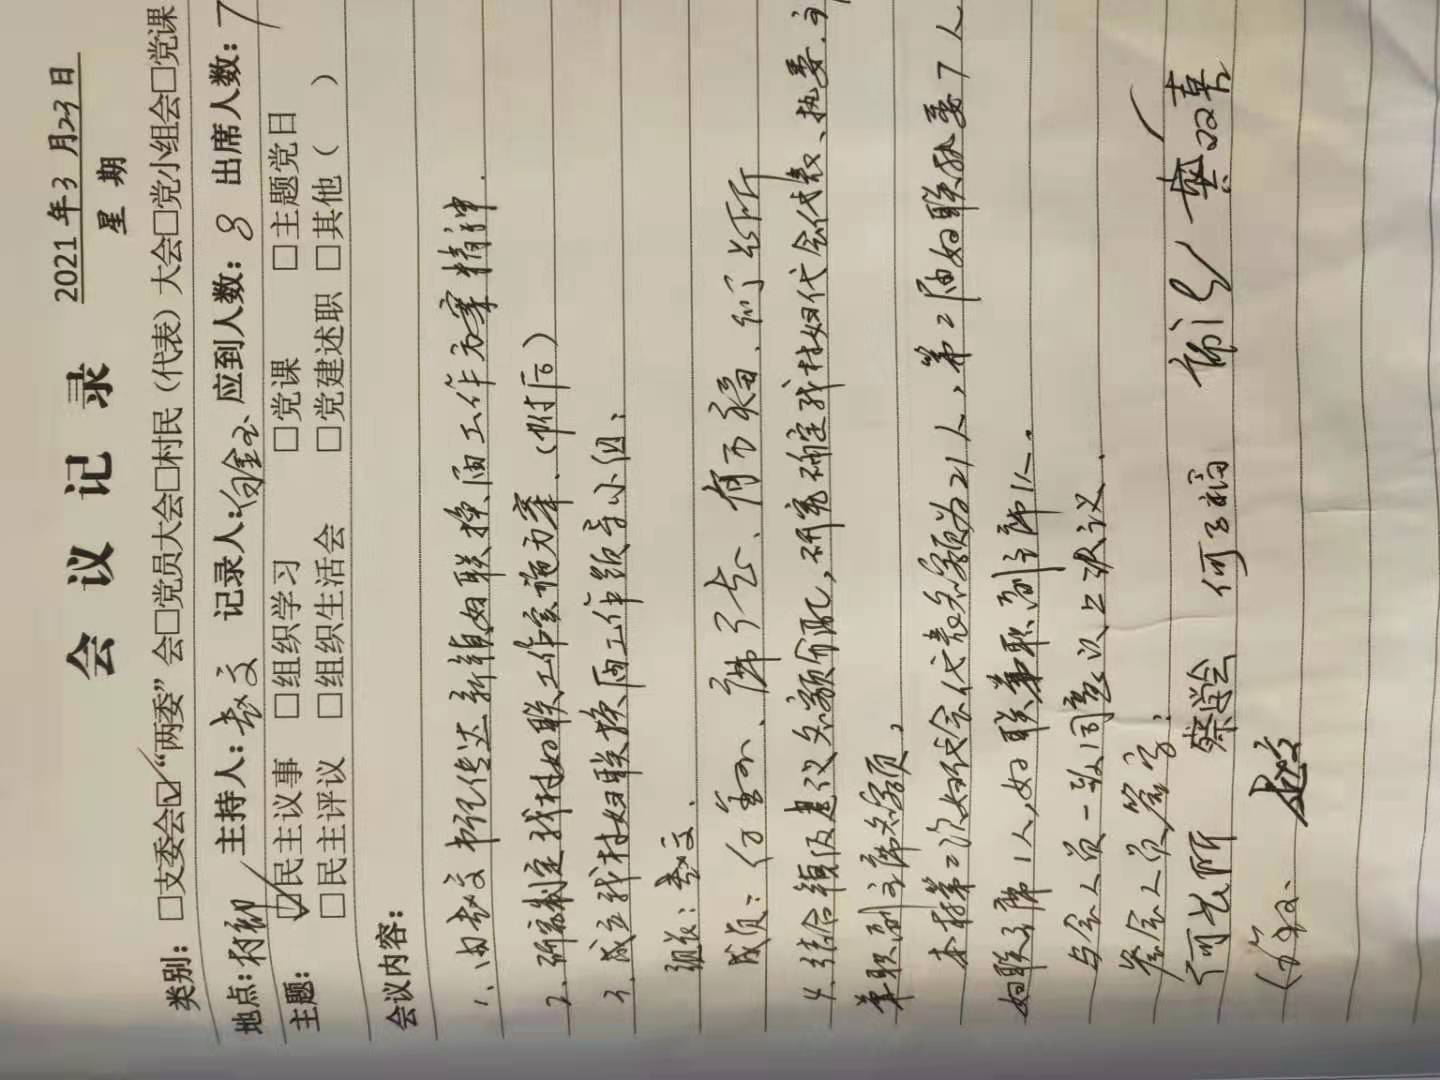 会议记录
2021年3月23日
星期
类别：□支委会☑“两委”会□党员大会□村民（代表）大会□党小组会□党课
地点：村部 主持人：赵文 记录人：金玉 应到人数：8 出席人数：7
主题：☑民主议事 □组织学习 □党课 □主题党日
□民主评议 □组织生活会 □党建述职 □其他（ ）
会议内容：
1、由赵文书记传达新镇妇联换届工作方案精神.
2、研究制定我村妇联工作实施方案、（附后）
3、成立我村妇联换届工作领导小组：
组长：赵文.
成员：
4、结合镇级建议名额分配，研究确定我村妇代会代表、执委、
兼职副主席名额，
本村第二次妇代会代表名额为21人，第2届妇联执委7人
妇联主席1人，妇联兼职副主席1人。
与会人员一致同意以上决议.
参会人员签字：
何长所 蔡学会 何 福
赵文